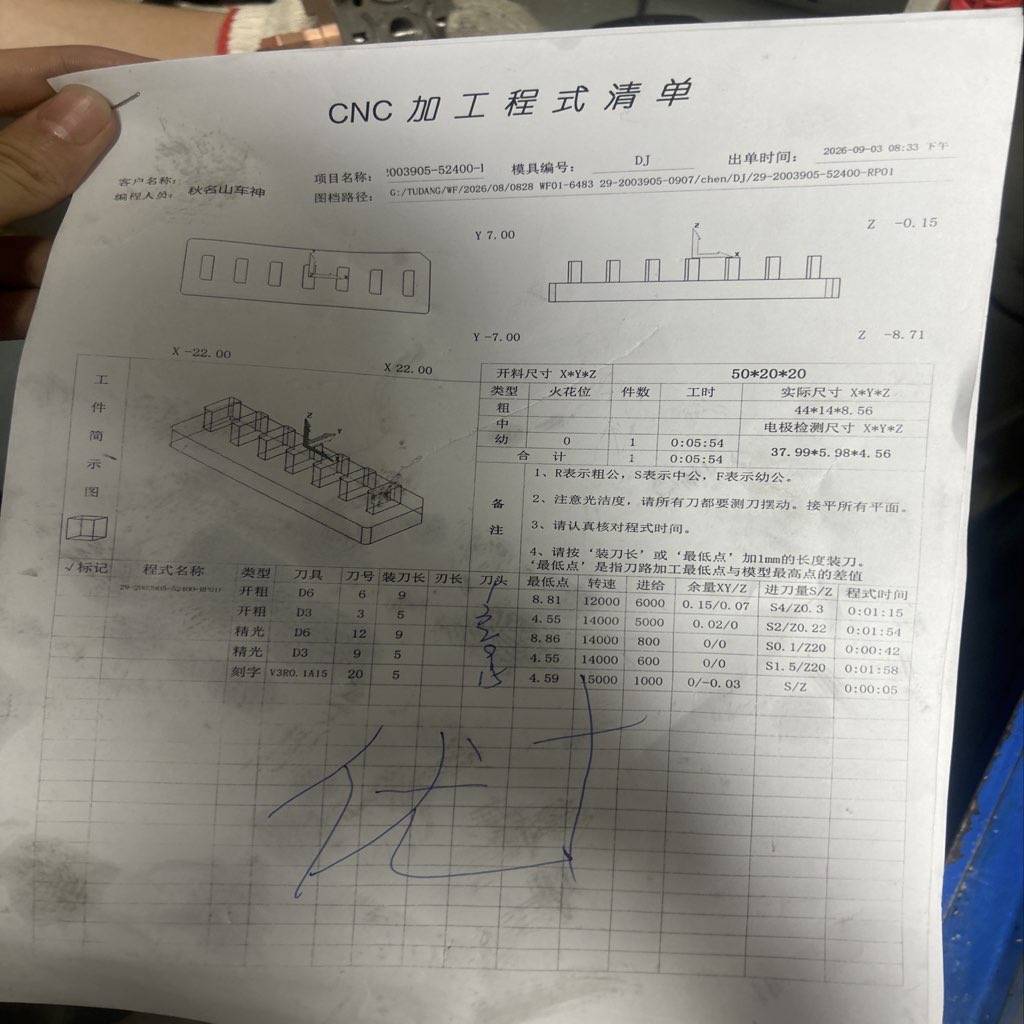 CNC 加工程式清单
客户名称：
项目名称： 2003905-52400-1 模具编号： DJ 出单时间： 2026-09-03 08:33 下午
编程人员： 秋名山车神 图档路径： G:/TUDANG/WF/2026/08/0828 WF01-6483 29-2003905-0907/chen/DJ/29-2003905-52400-RP01
Y 7.00 Z -0.15
Z X
Y -7.00 Z -8.71
X -22.00 X 22.00
工件简示图
开料尺寸 X*Y*Z 50*20*20
类型 火花位 件数 工时 实际尺寸 X*Y*Z
粗 44*14*8.56
中 电极检测尺寸 X*Y*Z
幼 0 1 0:05:54 37.99*5.98*4.56
合 计 1 0:05:54
备注
1、R表示粗公，S表示中公，F表示幼公。
2、注意光洁度，请所有刀都要测刀摆动。接平所有平面。
3、请认真核对程式时间。
4、请按‘装刀长’或‘最低点’加1mm的长度装刀。
‘最低点’是指刀路加工最低点与模型最高点的差值
√标记 程式名称 类型 刀具 刀号 装刀长 刃长 刀头 最低点 转速 进给 余量XY/Z 进刀量S/Z 程式时间
29-2003905-52400-RP01 开粗 D6 6 9 1 8.81 12000 6000 0.15/0.07 S4/Z0.3 0:01:15
开粗 D3 3 5 3 4.55 14000 5000 0.02/0 S2/Z0.22 0:01:54
精光 D6 12 9 2 8.86 14000 800 0/0 S0.1/Z20 0:00:42
精光 D3 9 5 9 4.55 14000 600 0/0 S1.5/Z20 0:01:58
刻字 V3R0.1A15 20 5 15 4.59 15000 1000 0/-0.03 S/Z 0:00:05